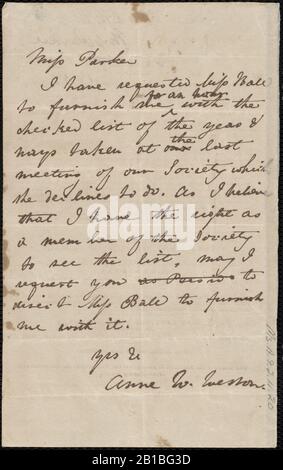 Miss Parker
I have requested Miss Ball
to furnish me with the
checked list of the yeas &
nays taken at our the last
meeting of our Society which
she declines to do. As I believe
that I have the right as
a member of the Society
to see the list, may I
request you to
direct Miss Ball to furnish
me with it.
yrs &c
Anne W. Weston.
alamy
Image ID: 2B1BG3D
www.alamy.com